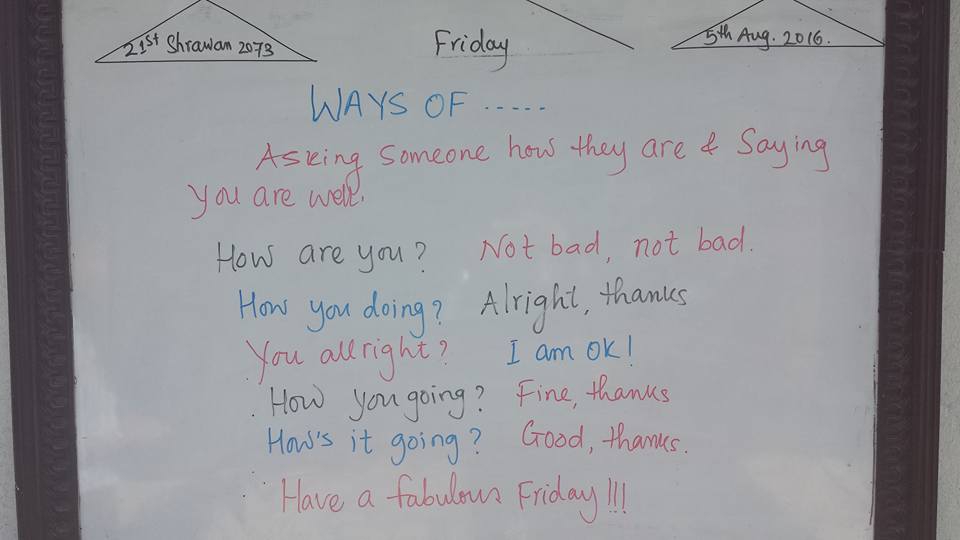 21st Shrawan 2073 Friday 5th Aug. 2016.
WAYS OF .....
Asking Someone how they are & Saying
You are well.
How are you? Not bad, not bad.
How you doing? Alright, thanks
You allright? I am OK!
How you going? Fine, thanks
How's it going? Good, thanks.
Have a fabulous Friday!!!